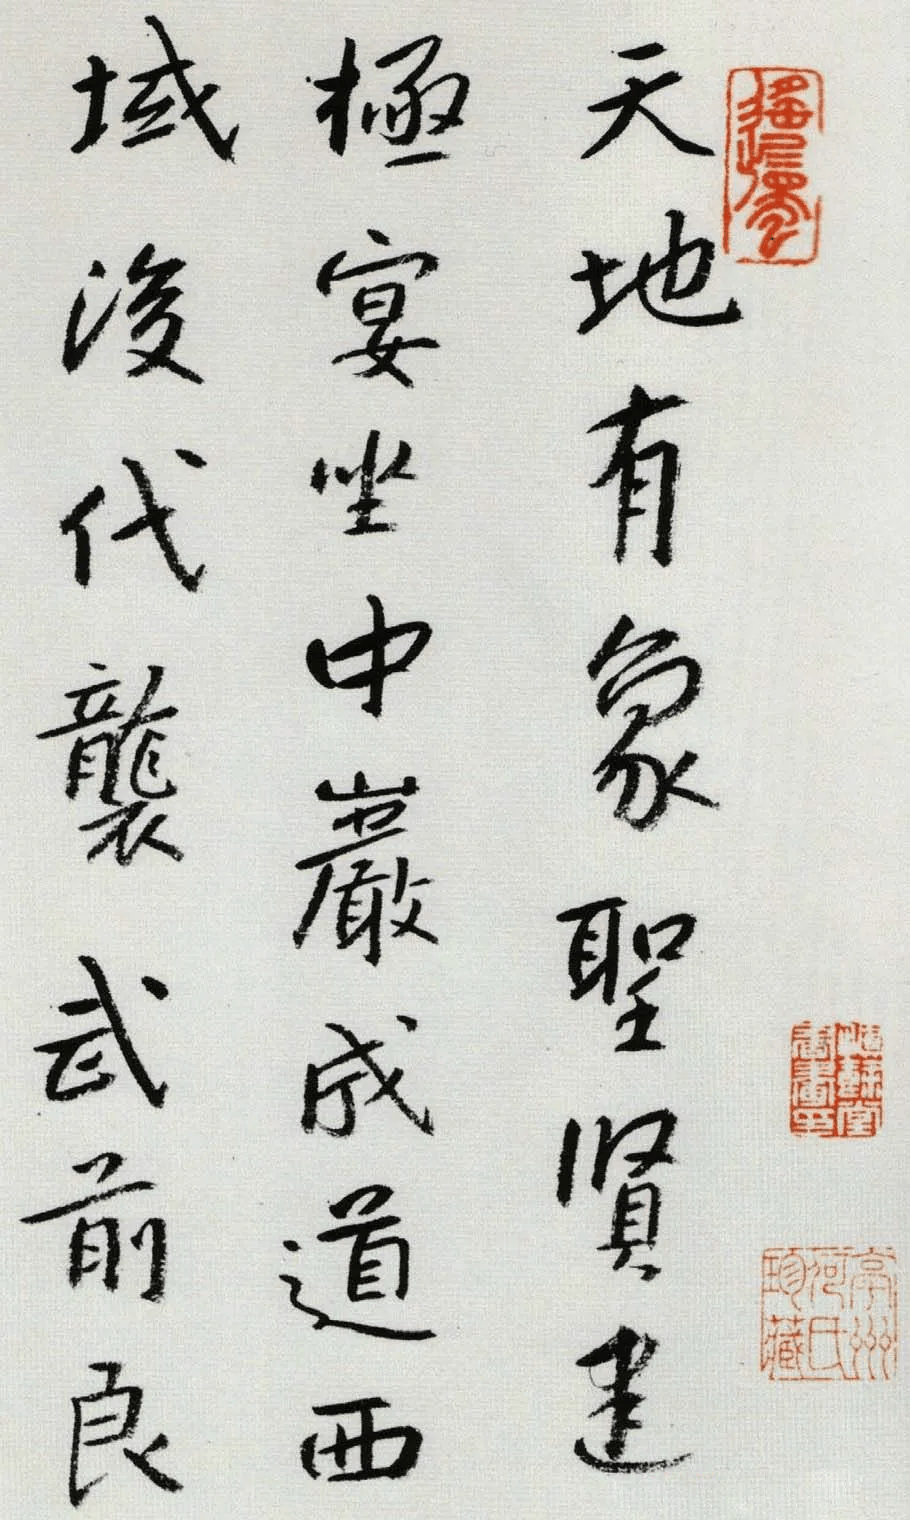 天地有象聖賢建
極宴坐中巖成道西
域後代襲武前良
亭州
氏
珍藏